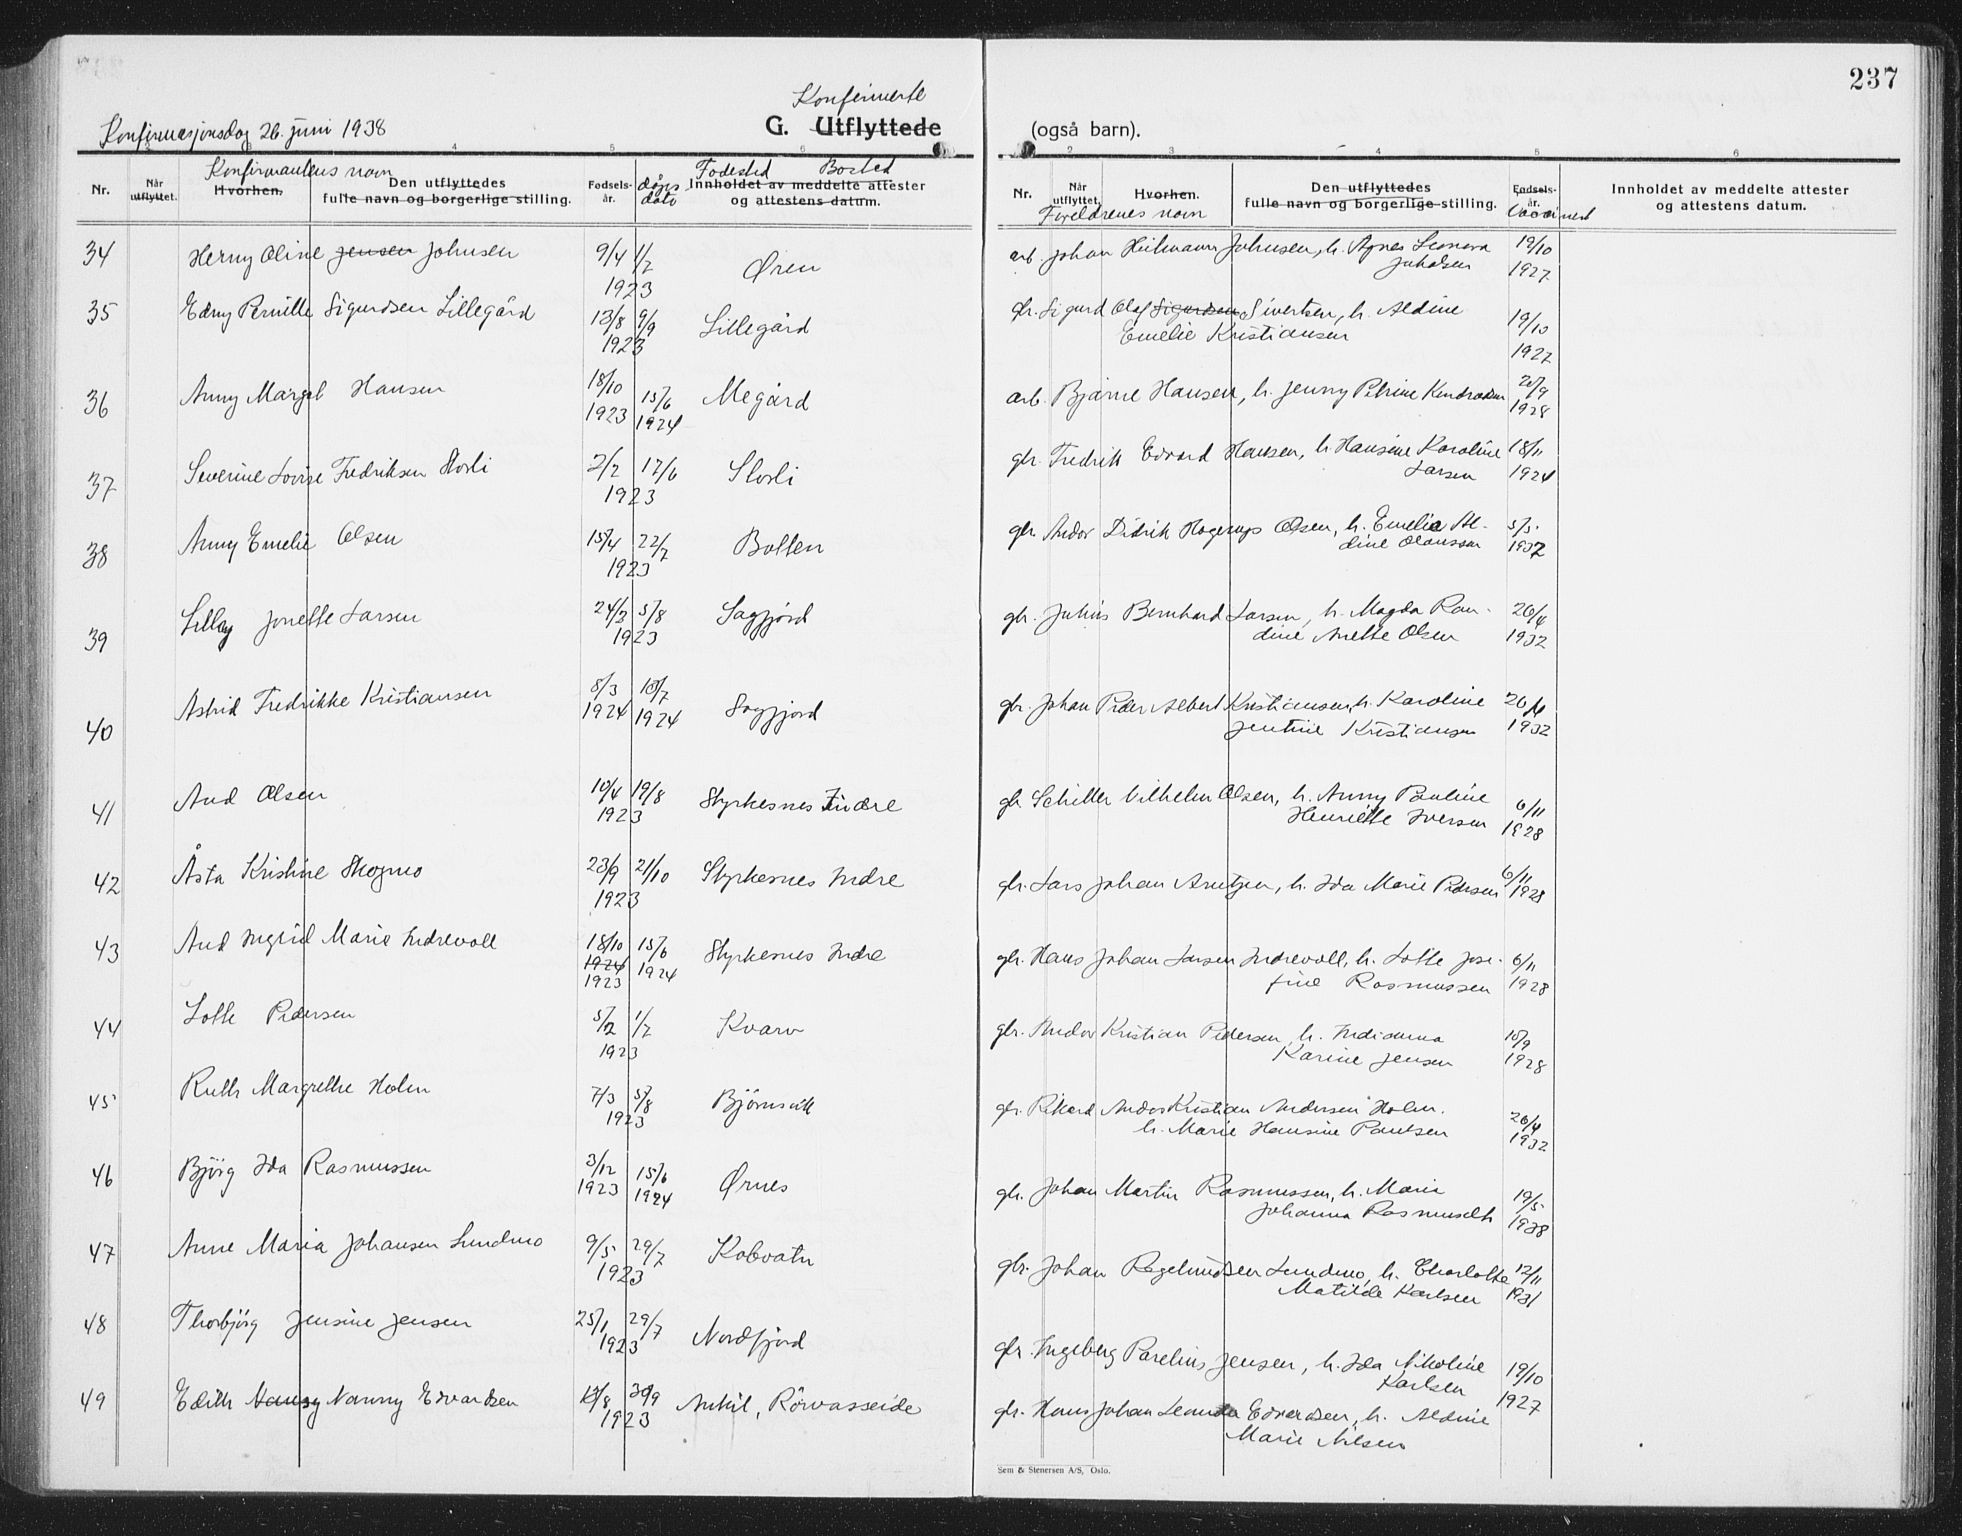 237
Konfirmasjonsdag 26. juni 1938
Konfirmerte
G. Utflyttede
(også barn).
2 4 5 6
2 3 4 5 6
Konfirmantens navn
Fødested Bosted
Nr. Når utflyttet. Hvorhen. Den utflyttedes fulle navn og borgerlige stilling. Fødsels-år. dåps dato Innholdet av meddelte attester og attestens datum.
Nr. Når utflyttet. Hvorhen. Den utflyttedes fulle navn og borgerlige stilling. Fødsels-år. Innholdet av meddelte attester og attestens datum.
Foreldrenes navn
Vaccinert
34 Herny Oline Jensen Johnsen 9/4 1/7 1923 Øren
arb. Johan Johnsen, h. Agnes Leonora 19/10 1927
35 Edny Pernille Sigurdsen Lillegård 13/8 9/9 1923 Lillegård
gbr. Sigurd Olaf Sigurdsen Sivertsen, h. Aldine
Emelie Kristiansen 19/10 1927
36 Anny Margot Hansen 18/10 1923 15/6 1924 Megård
arb. Bjarne Hansen, h. Jenny Petrine 1928
37 Severine Lovise Fredriksen Storli 2/2 17/6 1923 Storli
gbr. Fredrik Edvard Hansen, h. Hansine Karoline
Larsen 18/11 1924
38 Anny Emelie Olsen 15/4 22/7 1923 Botten
gbr. Andor Didrik Hagerups Olsen, h. Emelie Al-
dine 5/5 1932
39 Lilly Jonette Larsen 24/3 5/8 1923 Sagfjord
gbr. Julius Bernhard Larsen, h. Magda Ran-
dine Anette Olsen 26/4 1932
40 Astrid Fredrikke Kristiansen 8/3 1924 10/7 1924 Sagfjord
gbr. Johan Peder Albert Kristiansen, h. Karoline
Jentine Kristiansen 26/4 1932
41 Aud Olsen 10/4 19/8 1923 Styrkesnes Indre
gbr. Schiller Vilhelm Olsen, h. Anny Pauline
Henriette Iversen 6/11 1928
42 Åsta Kristine Skogmo 23/9 21/10 1923 Styrkesnes Indre
gbr. Lars Johan Arntzen, h. Ida Marie Pedersen 6/11 1928
43 Aud Ingrid Marie Indrevoll 18/10 1924 1923 15/6 1924 Styrkesnes Indre
gbr. Hans Johan Larsen Indrevoll, h. Lotte Jose-
fine Rasmussen 6/11 1928
44 Lotte Pedersen 5/2 1/7 1923 Kvarv
gbr. Andor Kristian Pedersen, h. Indianna
Karine Jensen 10/9 1928
45 Ruth Margrethe Holm 7/3 5/8 1923 Bjørnsvik
gbr. Rikard Andor Kristian Andersen Holm.
h. Marie Hansine Paulsen 26/4 1932
46 Bjørg Ida Rasmussen 3/12 1923 15/6 1924 Ørnes
gbr. Johan Martin Rasmussen, h. Marie
Johanna 19/5 1938
47 Anne Maria Johansen Lundmo 9/5 29/7 1923 Kobvatn
gbr. Johan Lundmo, h. Charlotte
Matilde Karlsen 12/11 1931
48 Thorbjørg Jensine Jensen 25/1 29/7 1923 Nordfjord
gbr. Ingeberg Parelius Jensen, h. Ida Nikoline
Karlsen 19/10 1927
49 Edith Nanny Edvardsen 1923 Antkil, Rörvasseide
gbr. Hans Johan Leander Edvardsen, h. Aldine
Marie Nilsen
Sem & Stenersen A/S, Oslo.